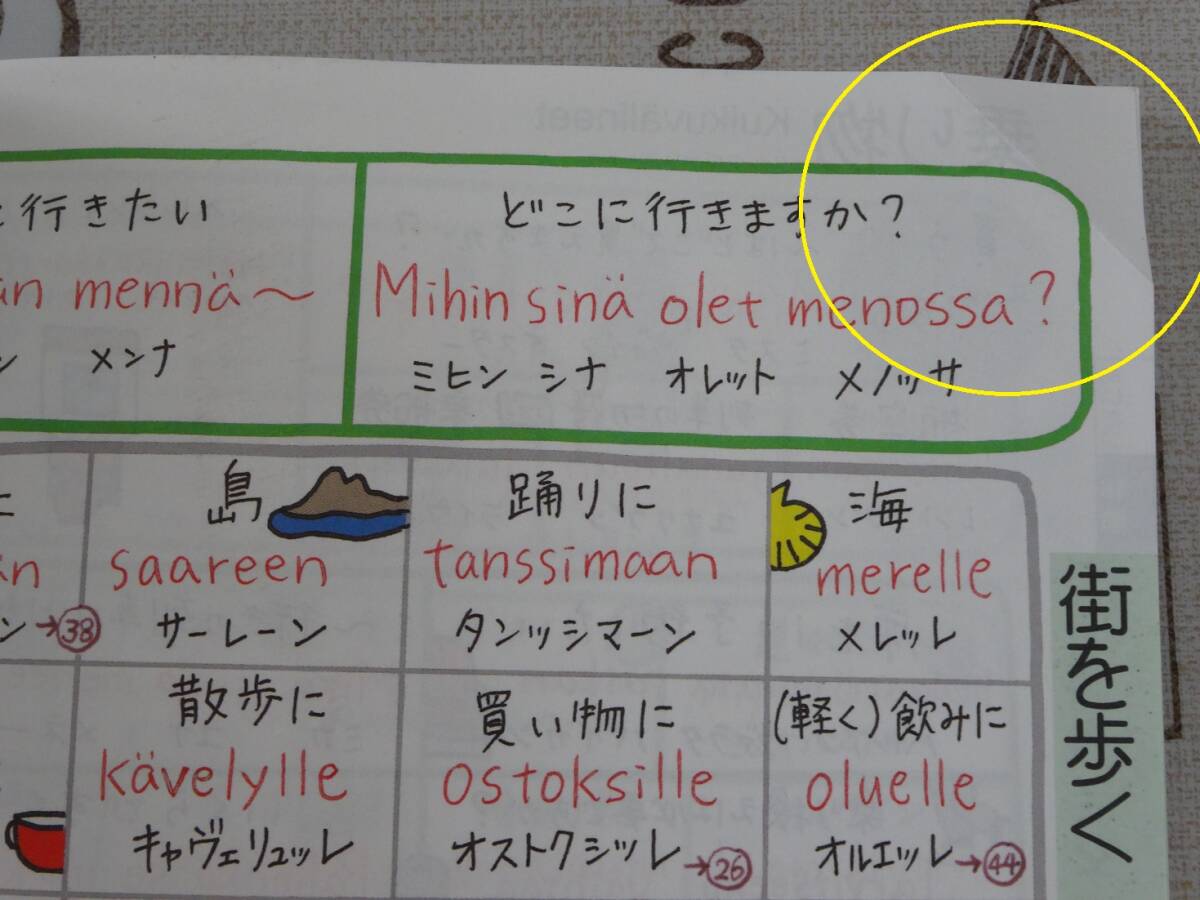 と行きたい
än mennä〜
ン メンナ
どこに行きますか？
Mihin sinä olet menossa?
ミヒン シナ オレット メノッサ
に
än
ン→38
島
saareen
サーレーン
踊りに
tanssimaan
タンッシマーン
海
merelle
メレッレ
散歩に
kävelylle
キャヴェリュッレ
買い物に
ostoksille
オストクシッレ→26
(軽く)飲みに
oluelle
オルエッレ→44
街を歩く